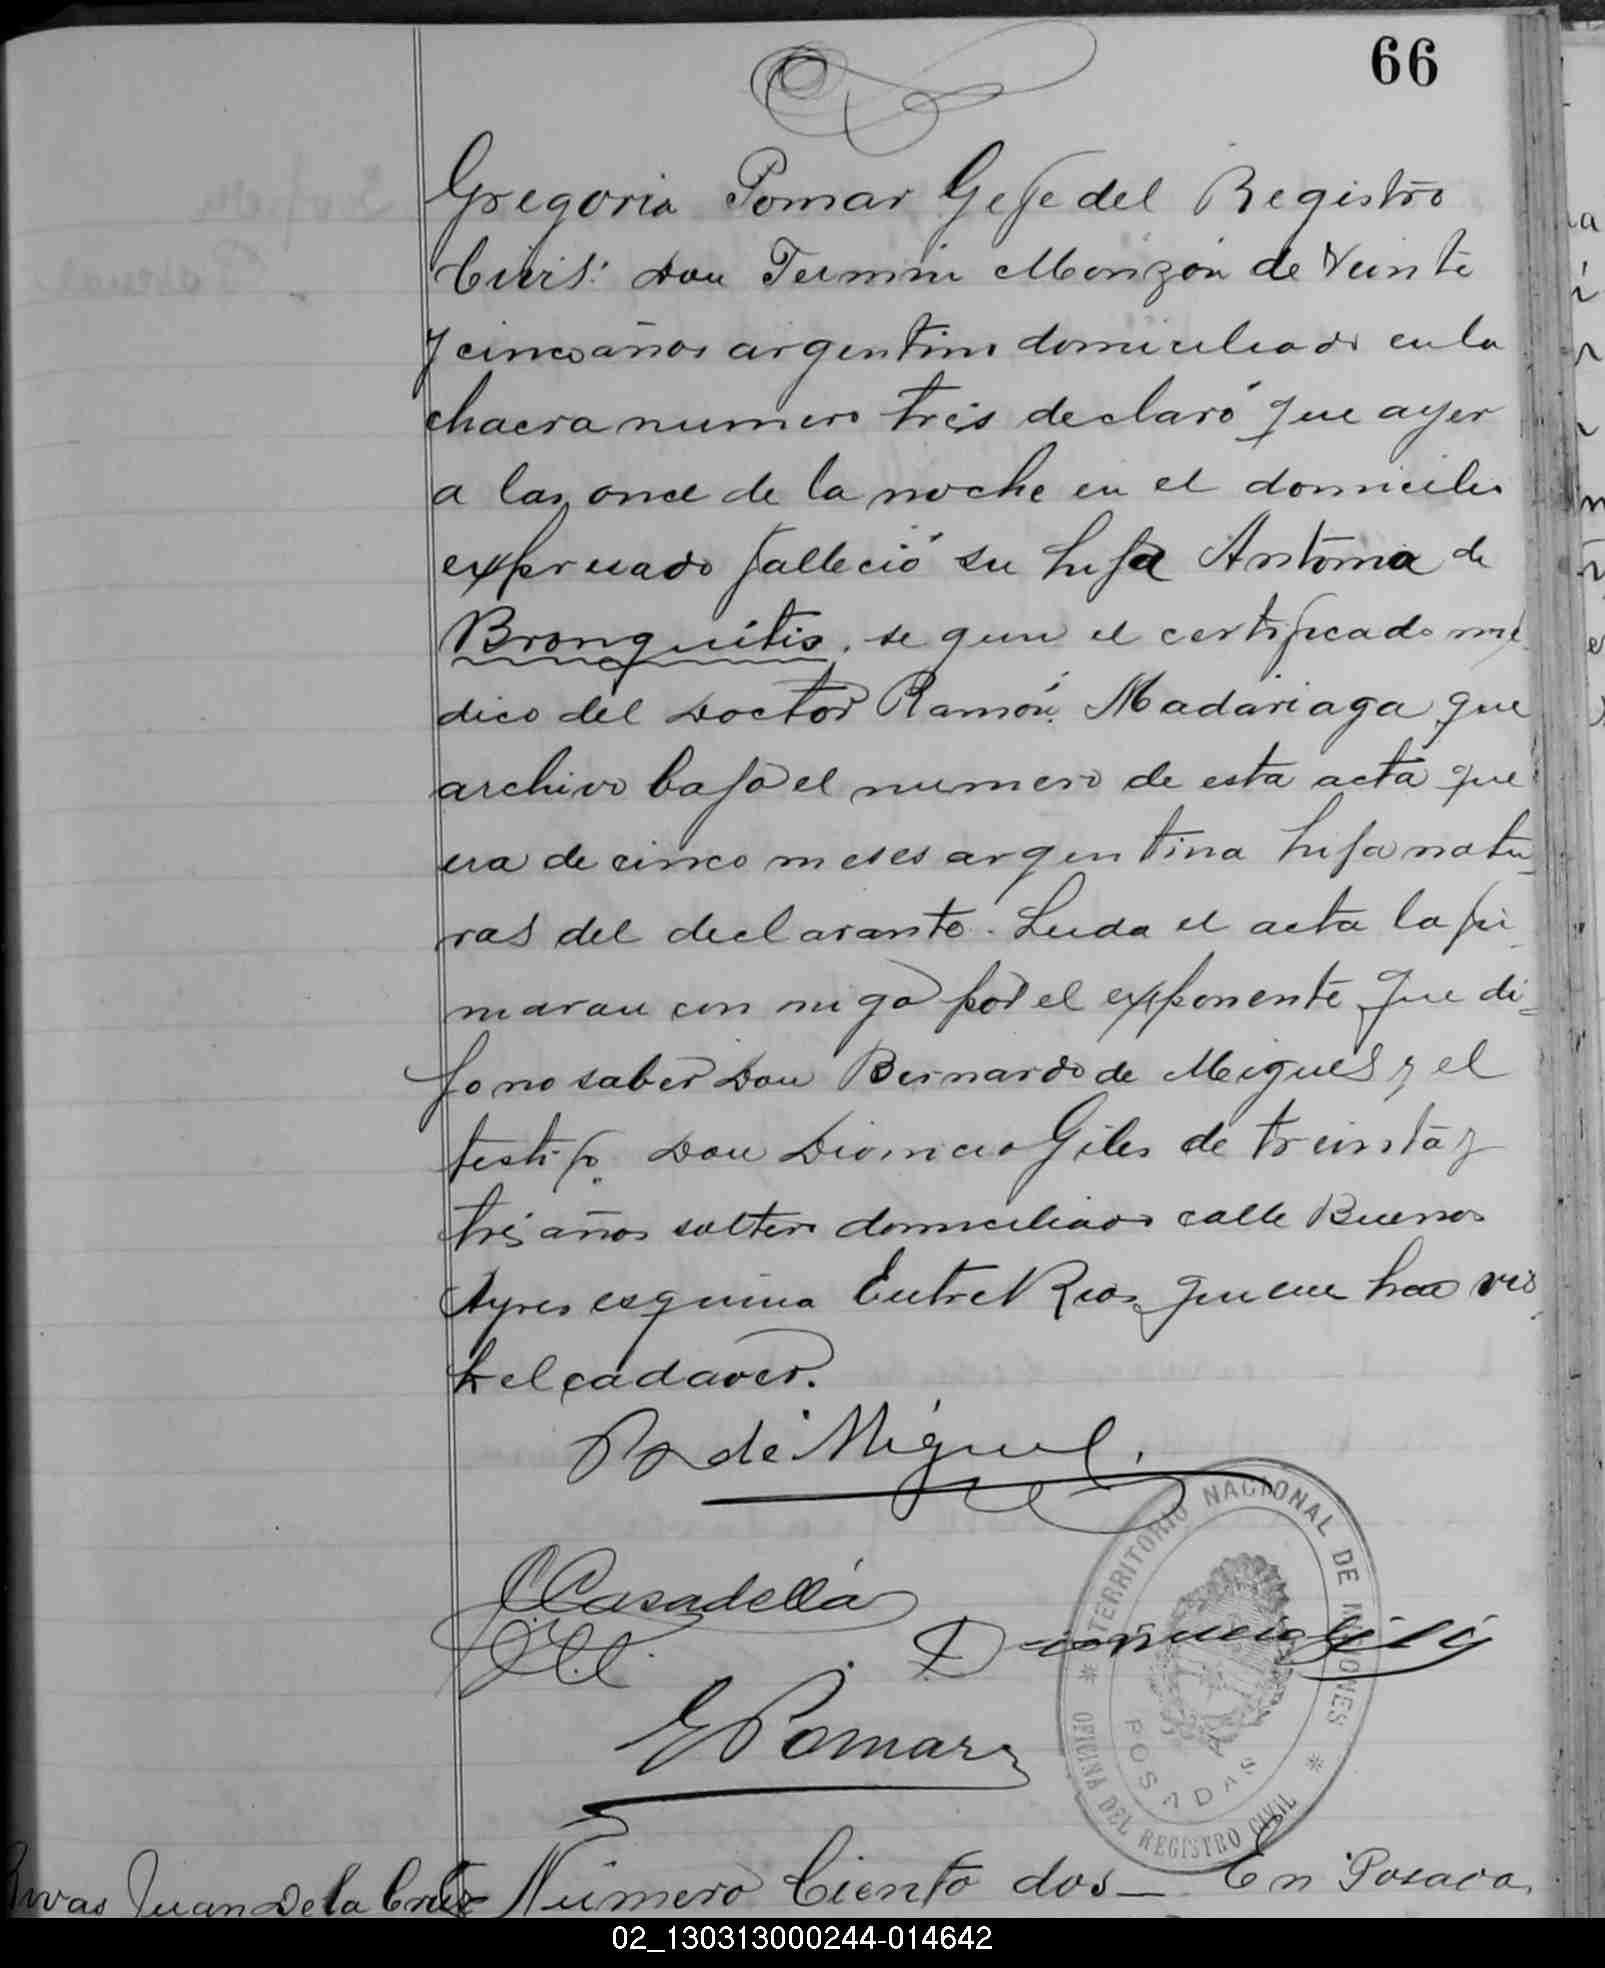 66
Gregorio Pomar Gefe del Registro
Civil: Don Fermin Monzón de Veinte
y cinco años argentino domiciliado en la
chacra numero tres declaró que ayer
a las once de la noche en el domicilio
expresado falleció su hija Antonia de
Bronquitis, segun el certificado mé
dico del Doctor Ramón Madariaga que
archivo bajo el numero de esta acta que
era de cinco meses argentina hija natu
ral del declarante. Leida el acta la fir
maron con migo por el exponente que di=
jo no saber Don Bernardo de Miguel y el
testigo Don Dionicio Giles de treinta y
tres años soltero domiciliado calle Buenos
Ayres esquina Entre Rios quienes han vis
to el cadaver.
B de Miguel.
Casadellá
Dionicio Giles
G Pomar
TERRITORIO NACIONAL DE MISIONES
POSADAS
OFICINA DEL REGISTRO CIVIL
Rivas Juan De la Cruz Número Ciento dos_ En Posada
02_130313000244-014642